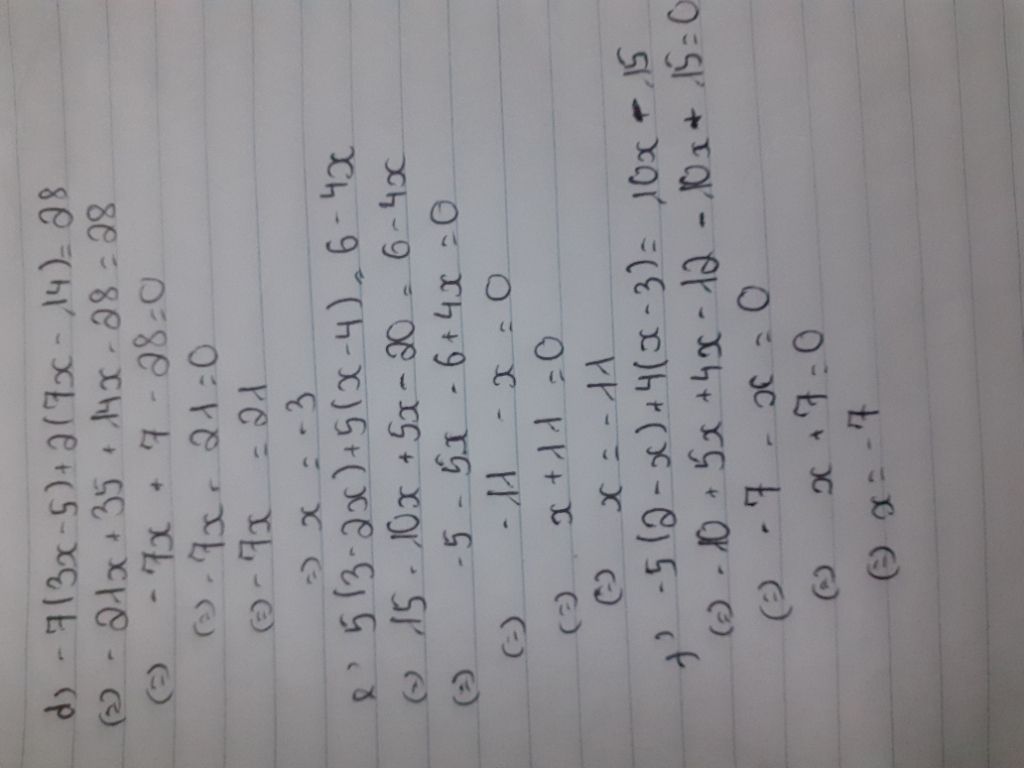 d) - 7(3x - 5) + 2(7x - 14) = 28
(=) - 21x + 35 + 14x - 28 = 28
(=) - 7x + 7 - 28 = 0
(=) - 7x - 21 = 0
(=) - 7x = 21
=) x = - 3
e) 5(3 - 2x) + 5(x - 4) = 6 - 4x
(=) 15 - 10x + 5x - 20 = 6 - 4x
(=) - 5 - 5x - 6 + 4x = 0
(=) - 11 - x = 0
(=) x + 11 = 0
(=) x = - 11
f) - 5(2 - x) + 4(x - 3) = 10x - 15
(=) - 10 + 5x + 4x - 12 - 10x + 15 = 0
(=) - 7 - x = 0
(=) x + 7 = 0
(=) x = - 7